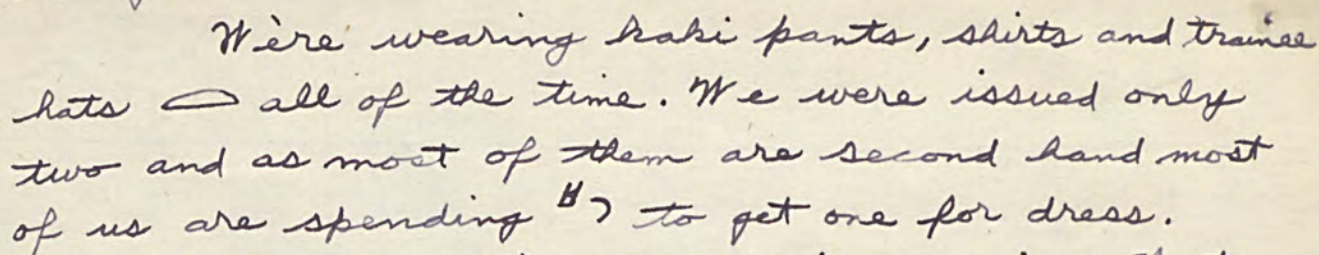 We're wearing kaki pants, shirts and trainee
hats all of the time. We were issued only
two and as most of them are second hand most
of us are spending $7 to get one for dress.